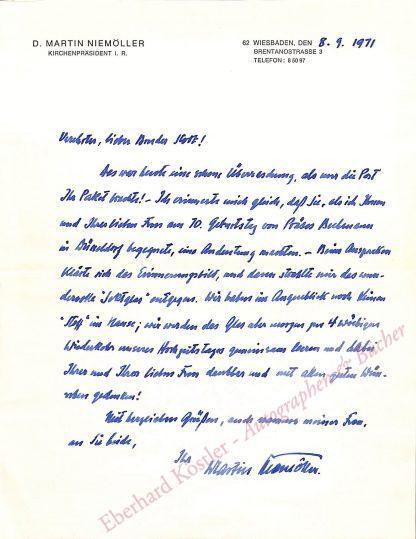 D. MARTIN NIEMÖLLER
KIRCHENPRÄSIDENT I. R.
62 WIESBADEN, DEN 8. 9. 1971
BRENTANOSTRASSE 3
TELEFON: 8 50 97
Verehrter, lieber Bruder !
Das war heute eine schöne Überraschung, als mir die Post
Ihr Paket brachte! - Ich erinnerte mich gleich, daß Sie, als ich Ihnen
und Ihrer lieben Frau am 70. Geburtstag von Präses Beckmann
in Düsseldorf begegnete, eine Andeutung machten. - Beim Auspacken
klärte sich das Erinnerungsbild, und dann strahlte mir das wun-
dervolle entgegen. Wir haben im Augenblick noch keinen
"Stoff" im Hause; wir werden das Glas aber morgen zur würdigen
Wiederkehr unseres Hochzeitstages gemeinsam leeren und dabei
Ihrer und Ihrer lieben Frau dankbar und mit allen guten Wün-
schen gedenken!
Mit herzlichen Grüßen, auch meiner Frau,
an Sie beide,
Ihr Martin Niemöller.
Eberhard Köstler - Autographen & Bücher